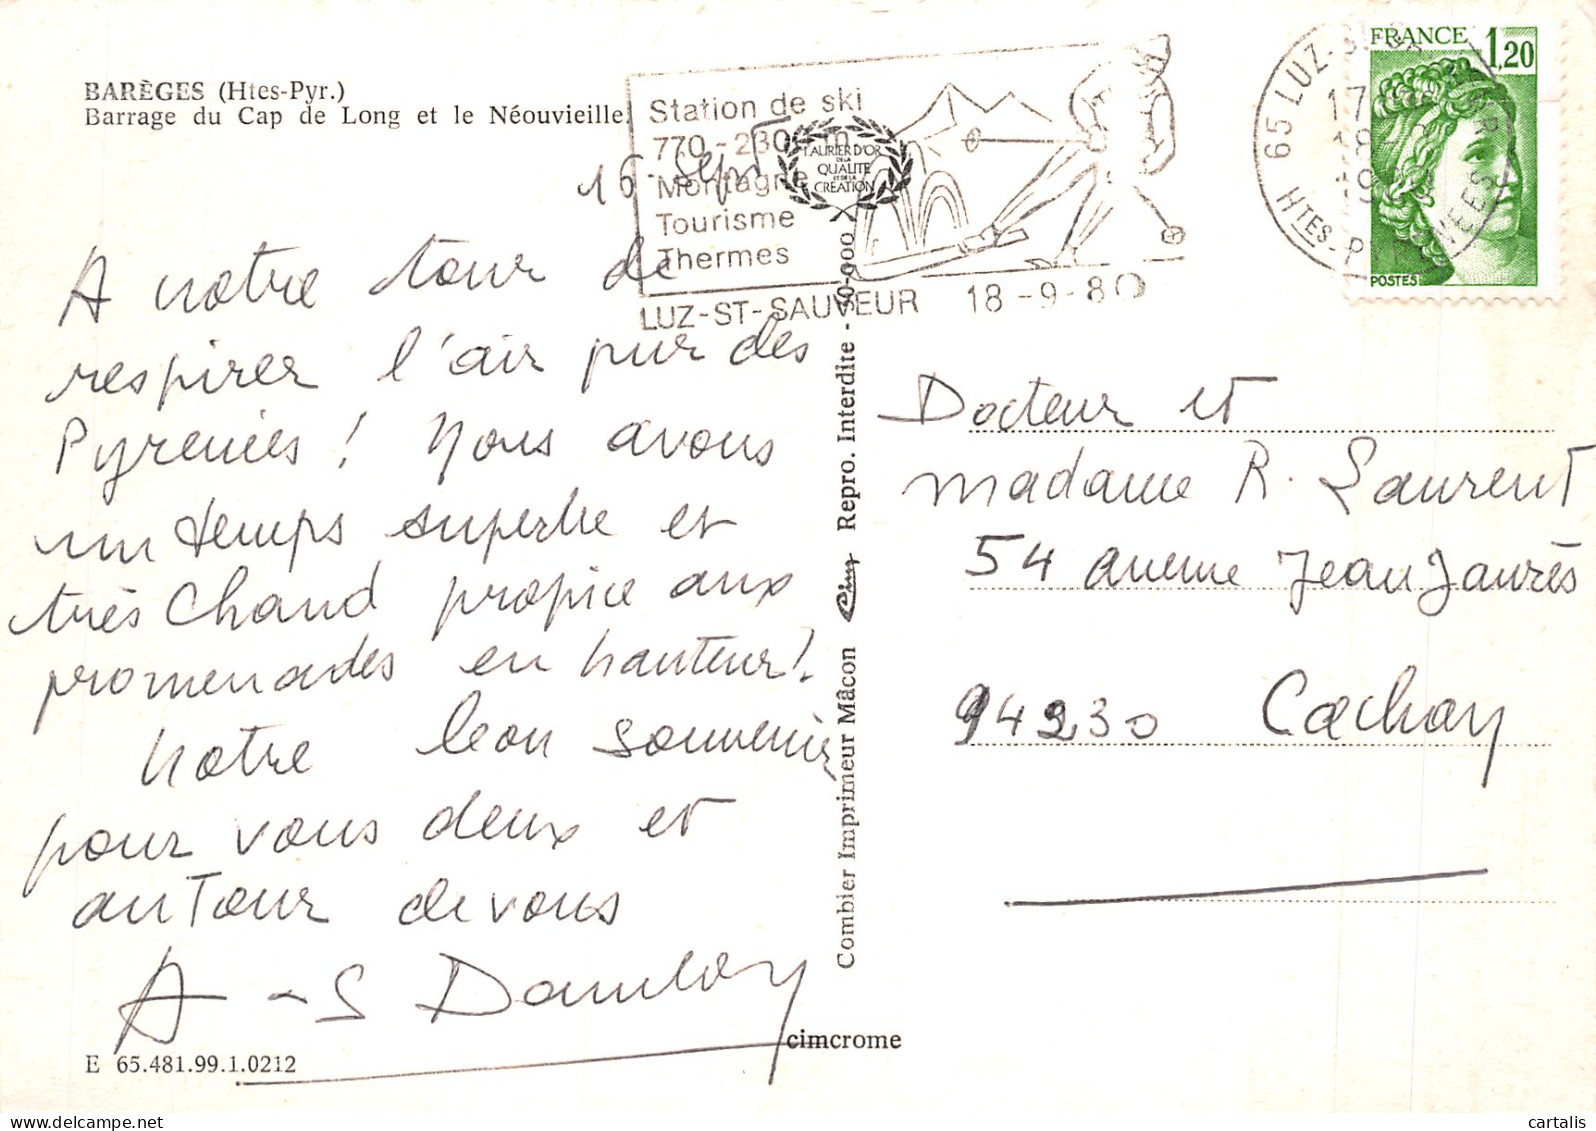 BARÈGES (Htes-Pyr.)
Barrage du Cap de Long et le Néouvieille.
16 Sept
A notre tour de
respirer l'air pur des
Pyrenées ! Nous avons
un temps superbe et
très chaud propice aux
promenades en hauteur !
Notre bon souvenir
pour vous deux et
autour de vous
A-S Dambon
E 65.481.99.1.0212
cimcrome
Station de ski
770-2300 m
Montagne
Tourisme
Thermes
LUZ-ST-SAUVEUR 18-9-80
LAURIER D'OR
DE LA
QUALITE
ET DE LA
CREATION
Combier Imprimeur Mâcon Cim Repro. Interdite - 50-000
65 LUZ-ST-
17
18
HTES-P
FRANCE 1,20
POSTES
Docteur et
madame R. Laurent
54 avenue Jean Jaurès
94230 Cachan
cartalis
www.delcampe.net